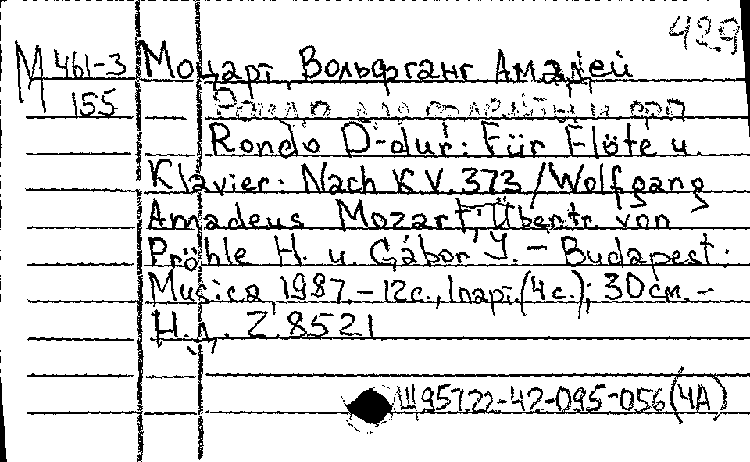 429
М 461-3 Моцарт, Вольфганг Амадей
155 Рондо для флейты и фп
Rondo D-dur: Für Flöte u.
Klavier: Nach KV. 373 / Wolfgang
Amadeus Mozart; Übertr. von
Pröhle H. u. Gábor J. – Budapest:
Musica, 1987. – 12с., 1парт. (4с.); 30см. –
Н.д. Z. 8521
Щ95722-42-095-056(4А)